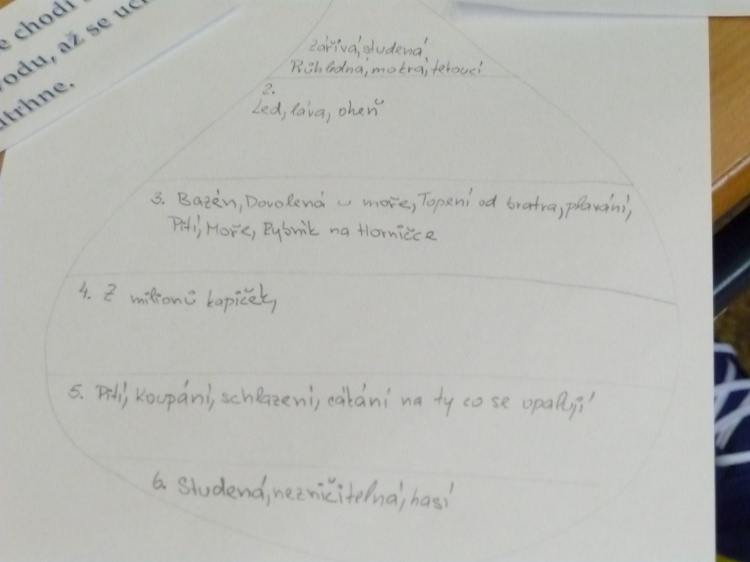 e chodí
vodu, až se uc
utrhne.
Zářivá, studená,
Průhledná, mokrá, tekoucí
2.
Led, láva, oheň
3. Bazén, Dovolená u moře, Topení od bratra, plavání,
Pití, Moře, Rybník na Horničce
4. Z milionů kapiček,
5. Pití, Koupání, schlazení, cákání na ty co se opalují
6. Studená, nezničitelná, hasí